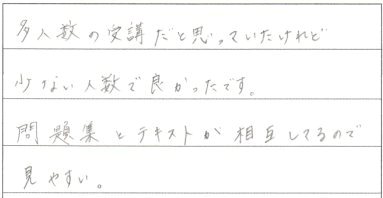 多人数の受講だと思っていたけれど
少ない人数で良かったです。
問題集とテキストが相互してるので
見やすい。